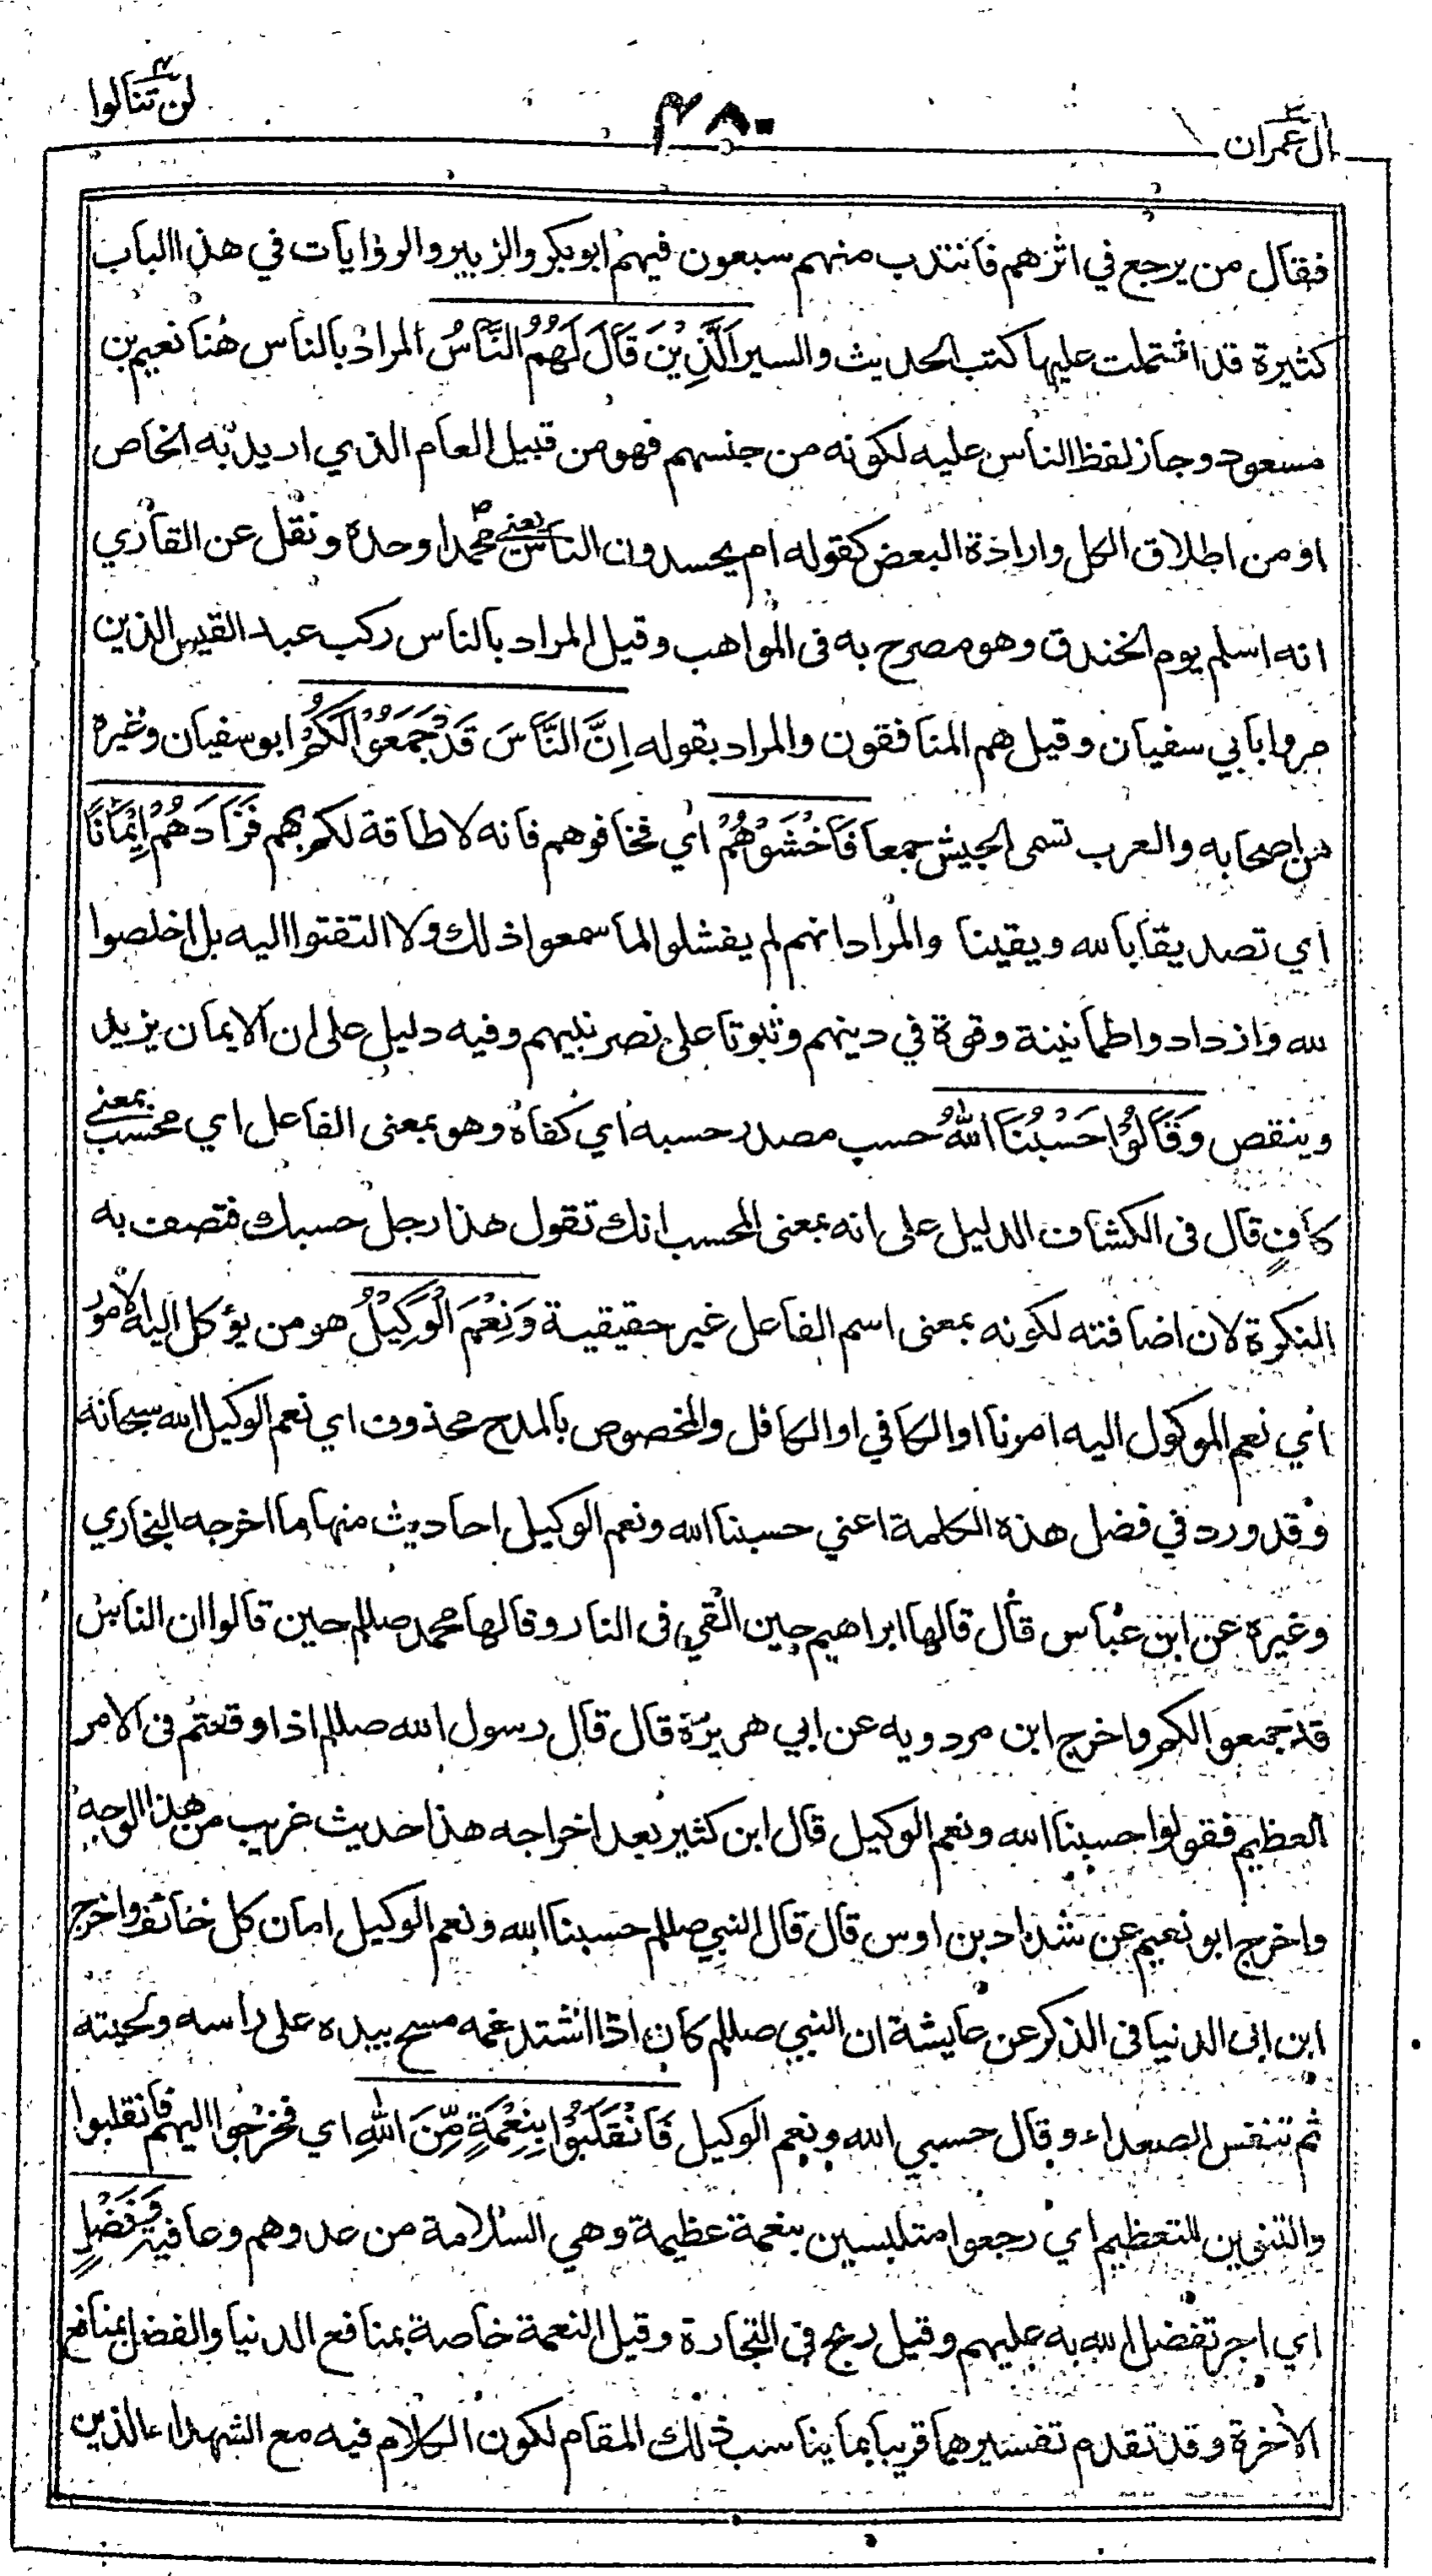 آل عمران ٣
٤٨٠
لن تنالوا ٤
فقال من يرجع في اثرهم فانتدب منهم سبعون فيهم ابو بكر والزبير والروايات في هذا الباب
كثيرة قد اشتملت عليها كتب الحديث والسير اَلَّذِيْنَ قَالَ لَهُمُ النَّاسُ المراد بالناس هنا نعيم بن
مسعود وجاز لفظ الناس عليه لكونه من جنسهم فهو من قبيل العام الذي اريد به الخاص
او من اطلاق الكل وارادة البعض كقوله ام يحسدون الناس يعني محمدا وحده ونقل عن القاري
انه اسلم يوم الخندق وهو مصرح به فى المواهب وقيل المراد بالناس ركب عبد القيس الذين
مروا بابي سفيان وقيل هم المنافقون والمراد بقوله اِنَّ النَّاسَ قَدْ جَمَعُوْا لَكُمْ ابو سفيان وغيره
من اصحابه والعرب تسمى الجيش جمعا فَاخْشَوْهُمْ اي فخافوهم فانه لا طاقة لكم بهم فَزَادَهُمْ اِيْمَانًا
اي تصديقا بالله ويقينا والمراد انهم لم يفشلوا لما سمعوا ذلك ولا التفتوا اليه بل اخلصوا
لله وازدادوا طمانينة وقوة في دينهم وثبوتا على نصر نبيهم وفيه دليل على ان الايمان يزيد
وينقص وَقَالُوْا حَسْبُنَا اللهُ حسب مصدر حسبه اي كفاه وهو بمعنى الفاعل اي محسب بمعنى
كافٍ قال فى الكشاف الدليل على انه بمعنى المحسب انك تقول هذا رجل حسبك فتصف به
النكرة لان اضافته لكونه بمعنى اسم الفاعل غير حقيقية وَنِعْمَ الْوَكِيْلُ هو من يؤكل اليه الامور
اي نعم الموكول اليه امرنا او الكافي او الكافل والمخصوص بالمدح محذوف اي نعم الوكيل الله سبحانه
وقد ورد في فضل هذه الكلمة اعني حسبنا الله ونعم الوكيل احاديث منها ما اخرجه البخاري
وغيره عن ابن عباس قال قالها ابراهيم حين القي فى النار وقالها محمد صللم حين قالوا ان الناس
قد جمعوا لكم واخرج ابن مردويه عن ابي هريرة قال قال رسول الله صللم اذا وقعتم فى الامر
العظيم فقولوا حسبنا الله ونعم الوكيل قال ابن كثير بعد اخراجه هذا حديث غريب من هذا الوجه
واخرج ابو نعيم عن شداد بن اوس قال قال النبي صللم حسبنا الله ونعم الوكيل امان كل خائف واخرج
ابن ابى الدنيا فى الذكر عن عايشة ان النبي صللم كان اذا اشتد غمه مسح بيده على راسه ولحيته
ثم تنفس الصعداء وقال حسبي الله ونعم الوكيل فَانْقَلَبُوْا بِنِعْمَةٍ مِّنَ اللهِ اي فخرجوا اليهم فانقلبوا
والتنوين للتعظيم اي رجعوا متلبسين بنعمة عظيمة وهي السلامة من عدوهم وعافية وَفَضْلٍ
اي اجر تفضل الله به عليهم وقيل ربح فى التجارة وقيل النعمة خاصة بمنافع الدنيا والفضل بمنافع
الاخرة وقد تقدم تفسيرهما قريبا بما يناسب ذلك المقام لكون الكلام فيه مع الشهداء الذين